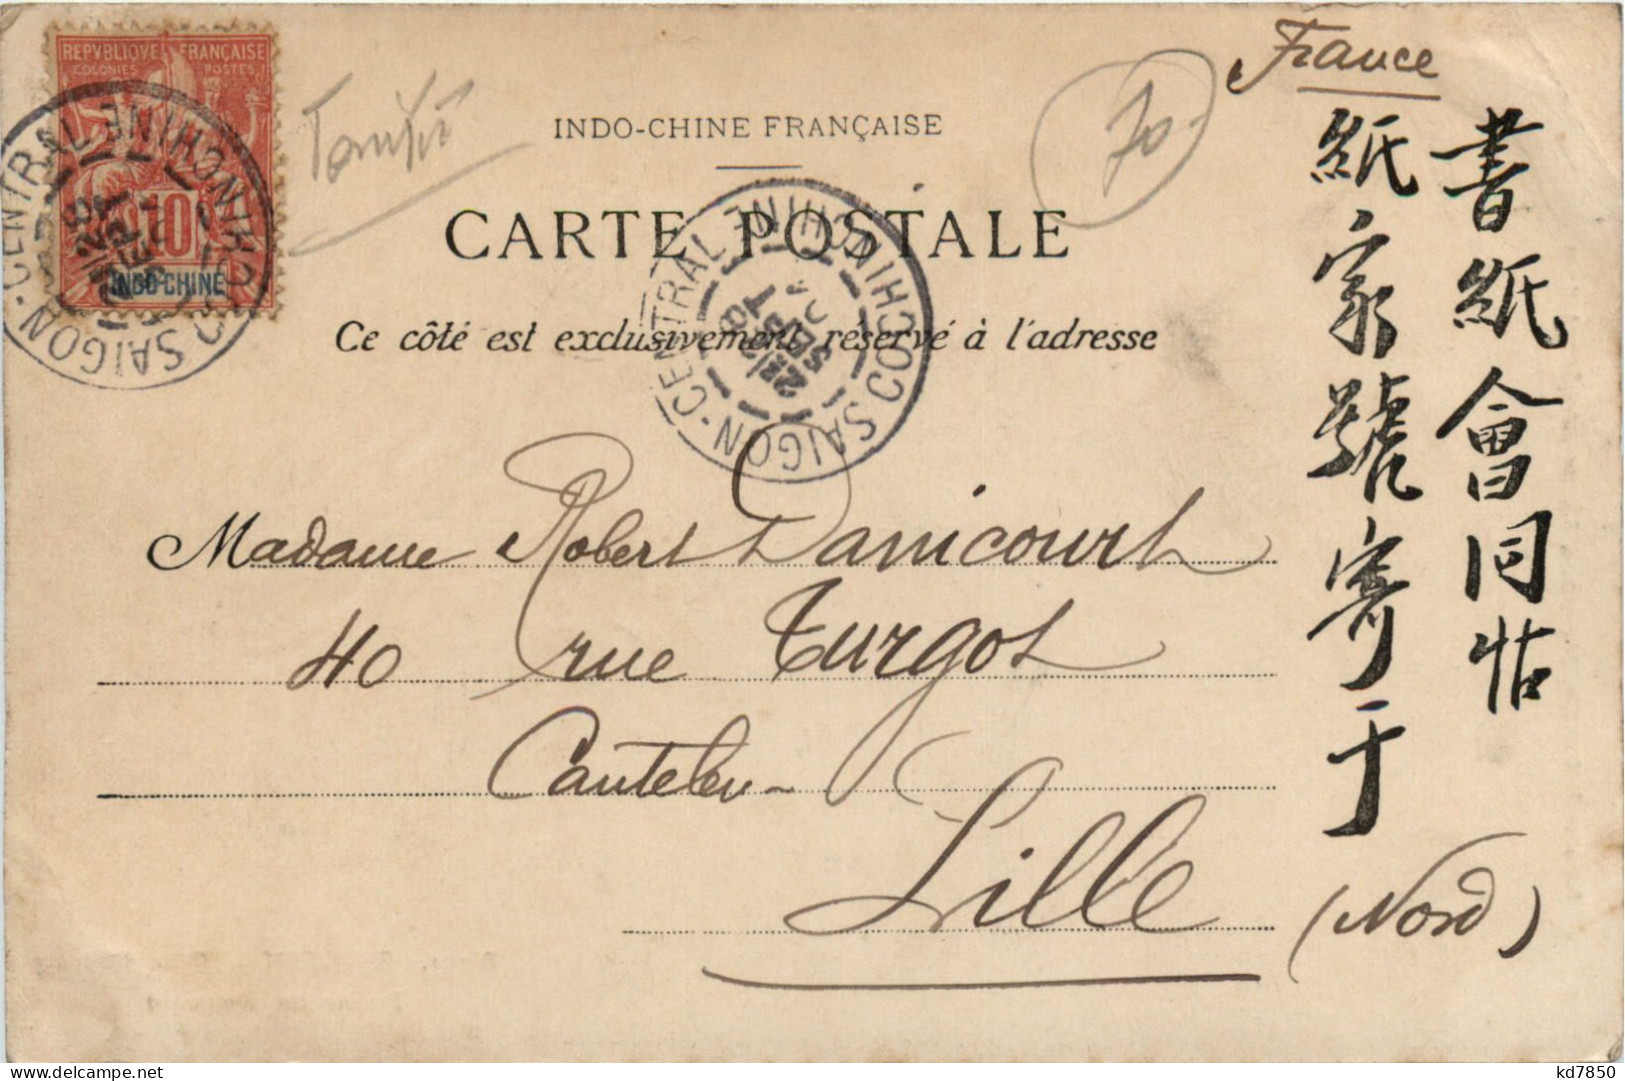 REPVBLIQVE FRANÇAISE
COLONIES POSTES
10
INDO-CHINE
SAIGON-CENTRAL COCHINCHINE
70
France
INDO-CHINE FRANÇAISE
CARTE POSTALE
SAIGON-CENTRAL COCHINCHINE
Ce côté est exclusivement réservé à l'adresse
書紙會同帖
紙家號寄于
Madame Robert Danicourt
40 rue Turgot
Canteleu-
Lille
(Nord)
kd7850